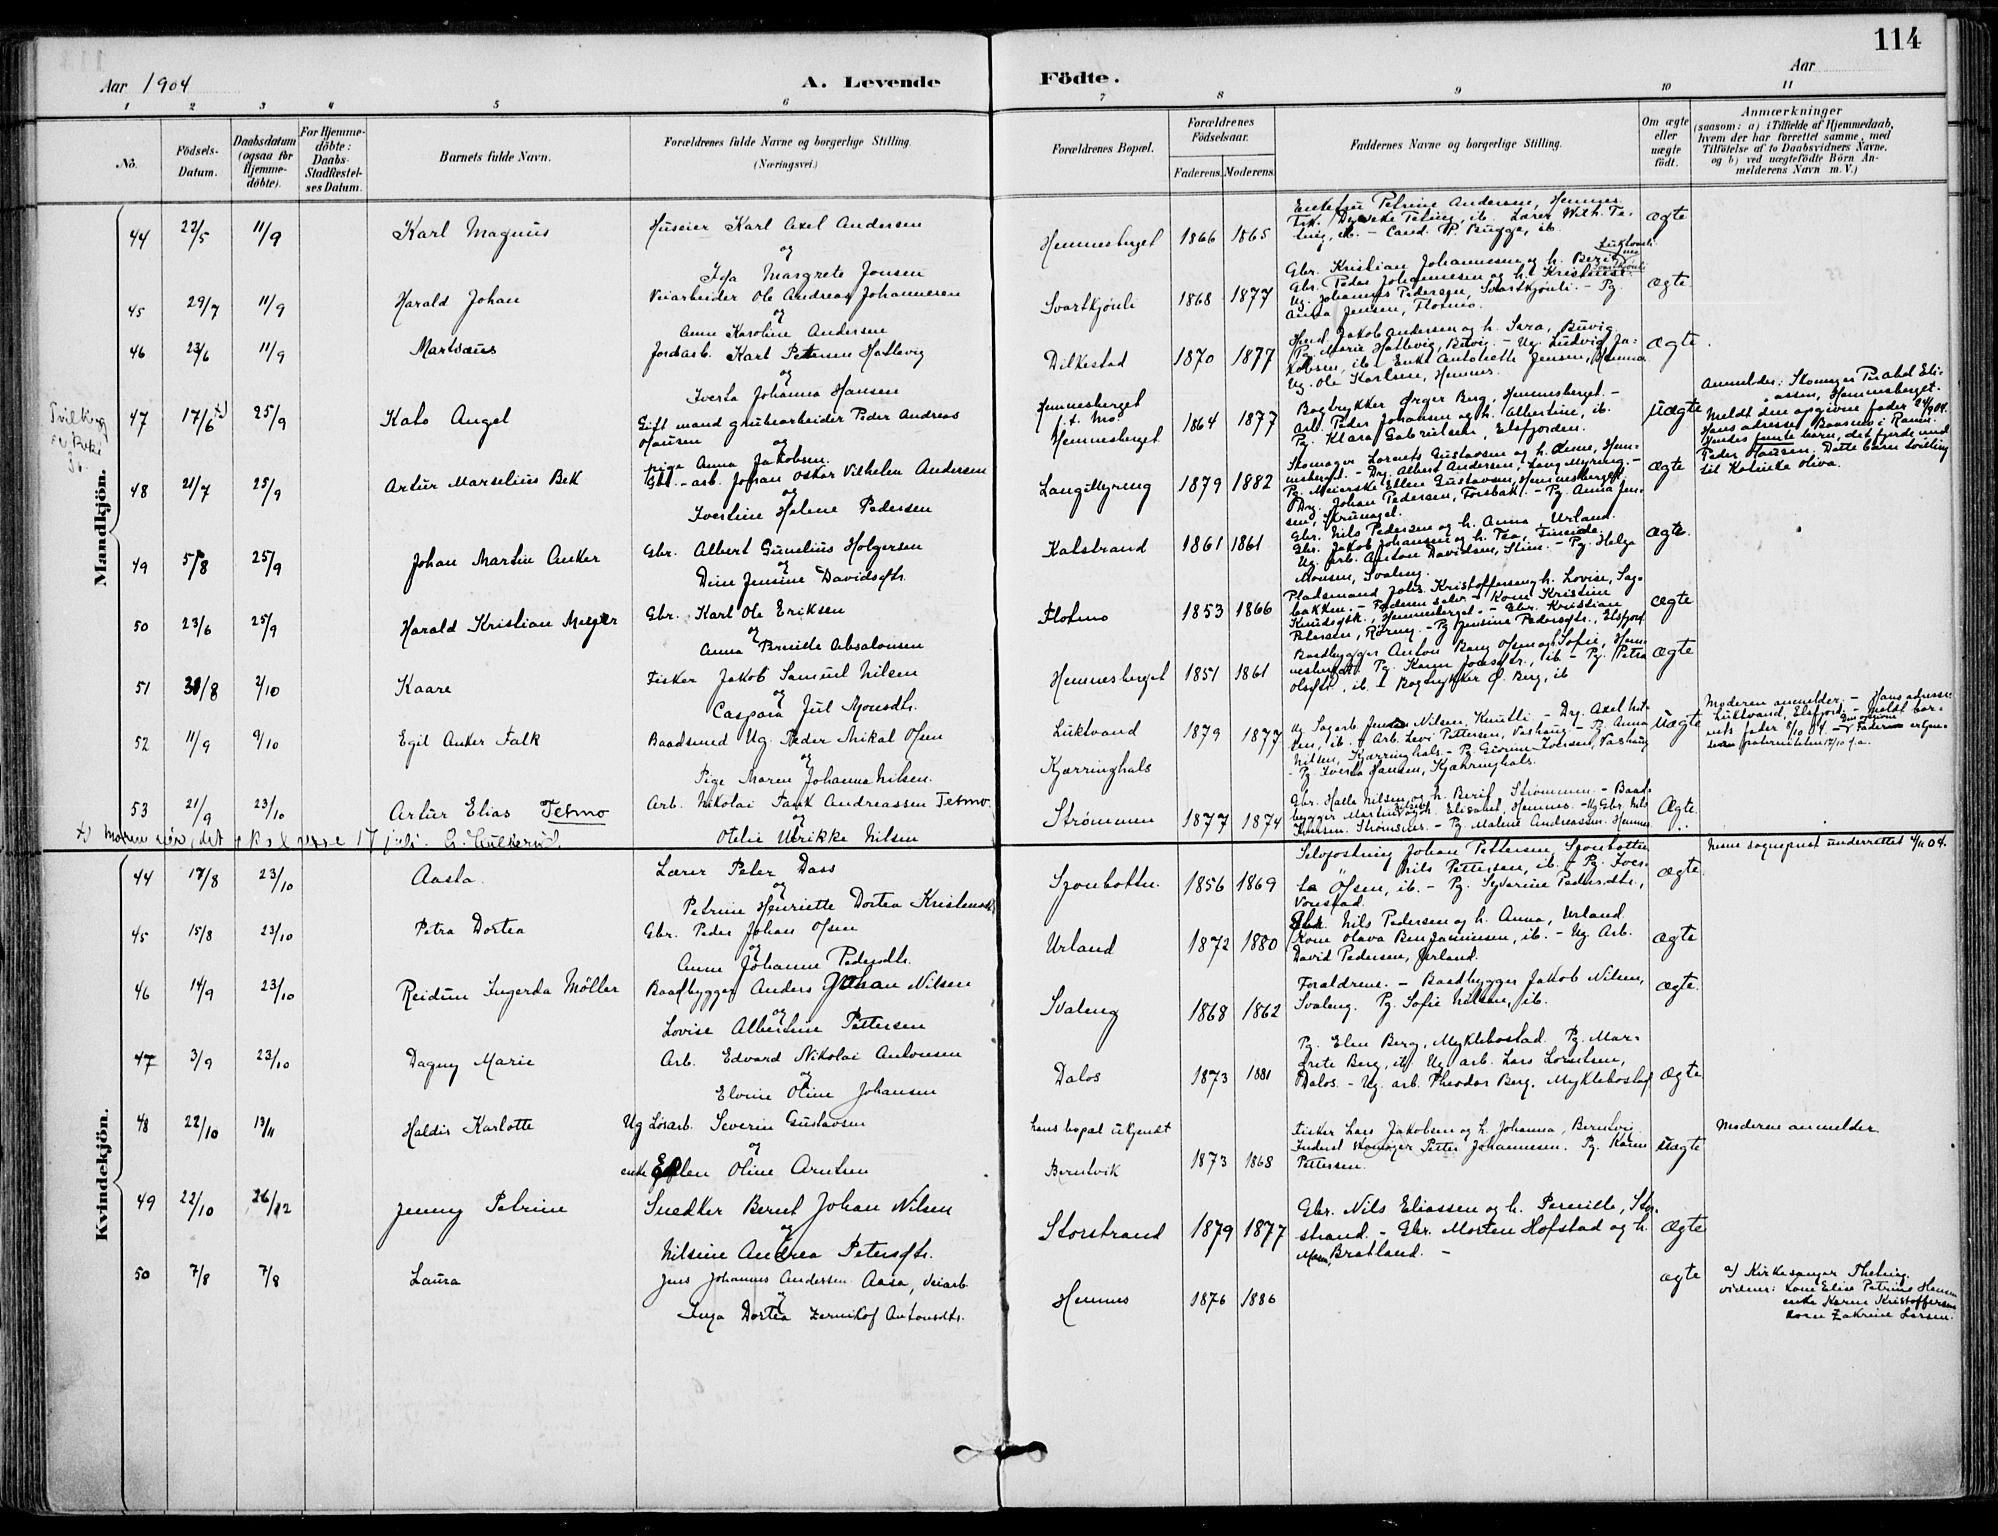 114
Aar 1904
A. Levende
Födte.
Aar
1 2 3 4 5 6 7 8 9 10 11
No.
Födsels-Datum.
Daabsdatum (ogsaa for Hjemme-döbte).
For Hjemme-döbte: Daabs-Stadfæstel-ses Datum.
Barnets fulde Navn.
Forældrenes fulde Navne og borgerlige Stilling. (Næringsvei.)
Forældrenes Bopæl.
Forældrenes Födselsaar.
Faderens. Moderens.
Faddernes Navne og borgerlige Stilling.
Om ægte eller uægte födt.
Anmærkninger
(saasom: a) i Tilfælde af Hjemmedaab,
hvem der har forrettet samme, med
Tilföielse af to Daabsvidners Navne,
og b) ved uægtefödte Börn An-
melderens Navn m. V.)
Mandkjön.
44 22/5 11/9 Karl Magnus Huseier Karl Axel Andersen
og
Ida Margrete Jonsen
Hemnesberget 1866 1865 Petrine Andersen, Hemnes
ib. Lærer Wilh. Te-
ting, ib. - Cand. P. Bugge, ib.
ægte
45 29/7 11/9 Harald Johan Veiarbeider Ole Andreas Johannesen
og
Anne Karoline Andersen
Svartkjønli 1868 1877 Gbr. Kristian Johannessen og h. Berit
Gbr. Peder Johannesen og h. Kristine
Ug. Johannes Pedersen, Svartkjønli. - Pg.
Anna Jensen, Flotmo.
ægte
46 23/6 11/9 Martsæus Jordarb. Karl Petersen Hattevig
og
Iverta Johanna Hansen
Dilkestad 1870 1877 Husd. Jakob Andersen og h. Sara, Buvig.
Pg. Marie Hattevig, Buvig. - Ug. Ludvig Ja-
kobsen, ib. Enke Antonette Jensen, Hemnes
Ug. Ole Karlsen, Hemnes.
ægte
47 17/6 25/9 Kato Angel Gift mand grubearbeider Peder Andreas
Hansen og
pige Anna Jakobsen.
Hemnesberget
f. Mo.
Hemnesberget
1864 1877 Bogtrykker Ørger Berg, Hemnesberget. -
Arb. Peder Johansen og h. Albertine, ib.
Pg. Klara Gabrielsen, Elsfjorden.
uægte
Anmelder: Skomager Per Abel Eli-
assen, Hemnesberget.
Meldt den opgivne fader 24/9 04.
Hans adresse Baasmo i Ranen.
Hendes femte barn, det fjerde med
Peder Hansen. Dette barn tvilling
til Katinka Oliva.
48 21/7 25/9 Artur Marselius Bek Gbr. - arb. Johan Oskar Vilhelm Andersen
og
Ivertine Helene Pedersen
LangMyreng 1879 1882 Skomager Lorents Gustavsen og h. Hem-
nesberget. - Drg. Albert Andersen, LangMyreng. -
Pg. Meierske Ellen Gustavsen, Hemnesberget,
Drg. Johan Pedersen, Forsbak. - Pg. Anna Jen-
sen,
ægte
49 5/8 25/9 Johan Martin Anker Gbr. Albert Gunelius Holgersen
og
Dine Jensine Davidsdtr.
Kalstrand 1861 1861 Gbr. Nils Pedersen og h. Anna, Urland.
Gbr. Jakob Johansen og h. Tea,
Ug. Arb. Anton Davidsen, - Pg. Helga
Monsen, Svaleng.
ægte
50 23/6 25/9 Harald Kristian Meyer Gbr. Karl Ole Eriksen
og
Anna Pernille Absalonsen
Flotmo 1853 1866 Pladsmand Johs. Kristoffersen og h. Lovise, Sag-
bakken. - Faderen selv - Kone Kristine
Knudsdtr., Hemnesberget. - Gbr. Kristian
Petersen, Røreng. - Pg Jensine Pedersdtr., Elsfjord.
ægte
51 31/8 2/10 Kaare Fisker Jakob Samuel Nilsen
og
Caspara Jul Monsdtr.
Hemnesberget 1851 1861 Baadbygger Anton Olsen og Sofie, Hem-
nesberget. Pg. Karen Jonsdtr., ib - Pg. Petra
Olsdtr., ib. - Bogtrykker Ø. Berg, ib
ægte
52 11/9 9/10 Egil Anker Falk Baadsmed Ug. Peder Mikal Olsen
og
Pige Maren Johanna Nilsen.
Luktvand
Kjærringhals
1879 1877 Ug Sagarb. Jentoft Nilsen, Knutli - Drg. Axel Nil-
sen, ib. - Arb. Levi Pettersen, Vashaug. - Pg. Anna
Nilsen, Kjærringhals. - Pg. Iversen, Vashaug
- Pg. Iverta Hansen, Kjærringhals.
uægte
Moderen anmelder. - Hans adresse:
Luktvand, Elsfjord. - Meldt bar-
nets fader 8/10 04. - Den opgivne Fader erkjen-
paterniteten 17/10 f.a.
53 21/9 23/10 Artur Elias Tetmo Arb. Nikolai Falk Andreassen Tetmo.
og
Otelie Ulrikke Nilsen
Strømmen 1877 1874 Gbr. Halle Nilsen og h. Berit, Strømmen - Baad-
bygger Martin og h. Elisabet, Hemnes. - Ug Gbr. Nils
Iversen. Strømsnes. - Pg. Malene Andreassen. Hemnes
Ægte.
Kvindekjön.
44 17/8 23/10 Aasta. Lærer Peter Dass
og
Petrine Henriette Dortea Kristensdtr
Sjonbotn. 1856 1869 Selvfostring Johan Pettersen, Sjonbotten
Nils Pettersen, ib. - Pg. Iver-
ta Olsen, ib. - Pg. Syverine Pedersdtr.,
Vonstad.
ægte
Nesne sogneprest underrettet 4/11 04.
45 15/8 23/10 Petra Dortea Gbr. Peder Johan Olsen
og
Anne Johanne Pedersdtr.
Urland 1872 1880 Gbr. Nils Pedersen og h. Anna, Urland
Kone Olava Benjaminsen, ib. - Ug. Arb.
David Pedersen, Urland.
ægte
46 14/9 23/10 Reidun Ingerda Möller Baadbygger Anders Johan Nilsen
og
Lovise Albertine Pettersen
Svaleng 1868 1862 Forældrene. - Baadbygger Jakob Nilsen,
Svaleng. Pg. Sofie Nilsen, ib.
ægte.
47 3/9 23/10 Dagny Marie Arb. Edvard Nikolai Antonsen
og
Elvine Oline Johansen
Dalos 1873 1881 Pg. Elen Berg, Myklebostad. Pg. Mar-
grete Berg, ib. Ug arb. Lars Lorntsen,
Dalos. - Ug. arb. Theodor Berg, Myklebostad
ægte
48 22/10 13/11 Haldis Karlotte Ug Løsarb. Severin Gustavsen
og
enke Ellen Oline Arntsen
hans bopæl ukjendt
Berntvik
1873 1868 Fisker Lars Jakobsen og h. Johanna, Berntvig
Inderst skomager Petter Johannesen. Pg. Karen
Pettersen.
uægte
Moderen anmelder
49 22/10 26/12 Jenny Petrine Snedker Bernt Johan Nilsen
og
Nilsine Andrea Petersdtr.
Storstrand 1879 1877 Gbr. Nils Eliassen og h. Pernille, Stor-
strand. - Gbr. Morten Hofstad og h.
Maren, Bratland. -
ægte
50 7/8 7/8 Laura Jens Johannes Andersen Aasa, veiarb
og
Inga Dortea Zernikof Antonsdtr.
Hemnes 1876 1886 ægte
a) Kirkesanger Theting.
vidner: kone Elise Petrine Hansen
enke Karen Kristoffersen
kone Zakrine Larsen.